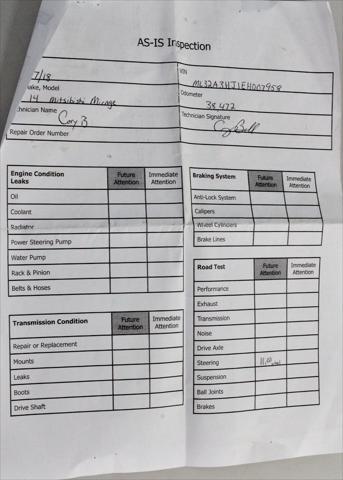 AS-IS Inspection
7/18
VIN
ML32A3HJ1EH007958
ake, Model
14 Mitsibishi Mirage
Odometer
38,472
chnician Name
Cory B
Technician Signature
Repair Order Number
Engine Condition Future Immediate
Leaks Attention Attention
Oil
Coolant
Radiator
Power Steering Pump
Water Pump
Rack & Pinion
Belts & Hoses
Transmission Condition Future Immediate
Attention Attention
Repair or Replacement
Mounts
Leaks
Boots
Drive Shaft
Braking System Future Immediate
Attention Attention
Anti-Lock System
Calipers
Wheel Cylinders
Brake Lines
Road Test Future Immediate
Attention Attention
Performance
Exhaust
Transmission
Noise
Drive Axle
Steering
Suspension
Ball Joints
Brakes